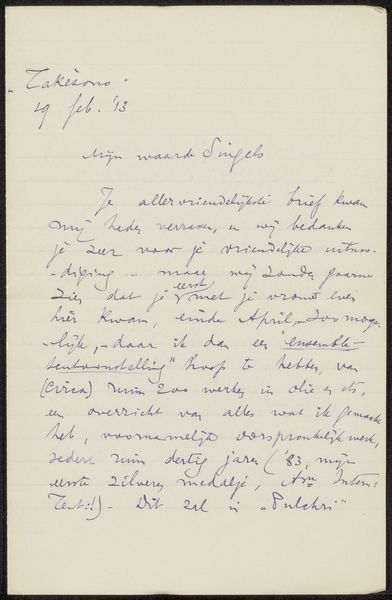 "Takēsono"
19 feb. '13
Mijn waarde Singels
Je allervriendelijkste brief kwam
mij heden verrassen, en wij bedanken
je zeer voor je vriendelijke uitnoo-
-diging ... maar wij zouden gaarne
zien dat je eerst met je vrouw even
hier kwam, einde April, - zoo moge-
-lijk, - daar ik dan een "ensemble-
tentoonstelling" hoop te hebben, van
(circa) ruim 200 werken in olie en ets,
een overzicht van alles wat ik gemaakt
heb, voornamelijk oorspronkelijk werk,
sedert ruim dertig jaren ('83, mijn
eerste zilveren medalje, Am Intern:
Tent:!). - Dit zal in "Pulchri"